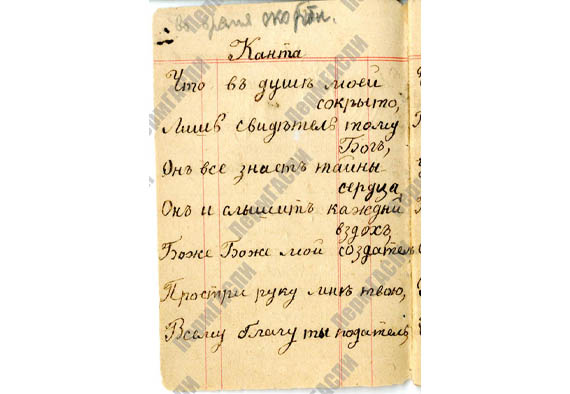 во время скорби.
Канта
Что въ душѣ моей
сокрыто,
Лишь свидѣтель тому
Богъ,
Онъ все знаетъ тайны
сердца,
Онъ и слышитъ каждый
вздохъ,
Боже Боже мой создатель
Простри руку мнѣ твою,
Всему благу ты податель,
ПермГАСПИ